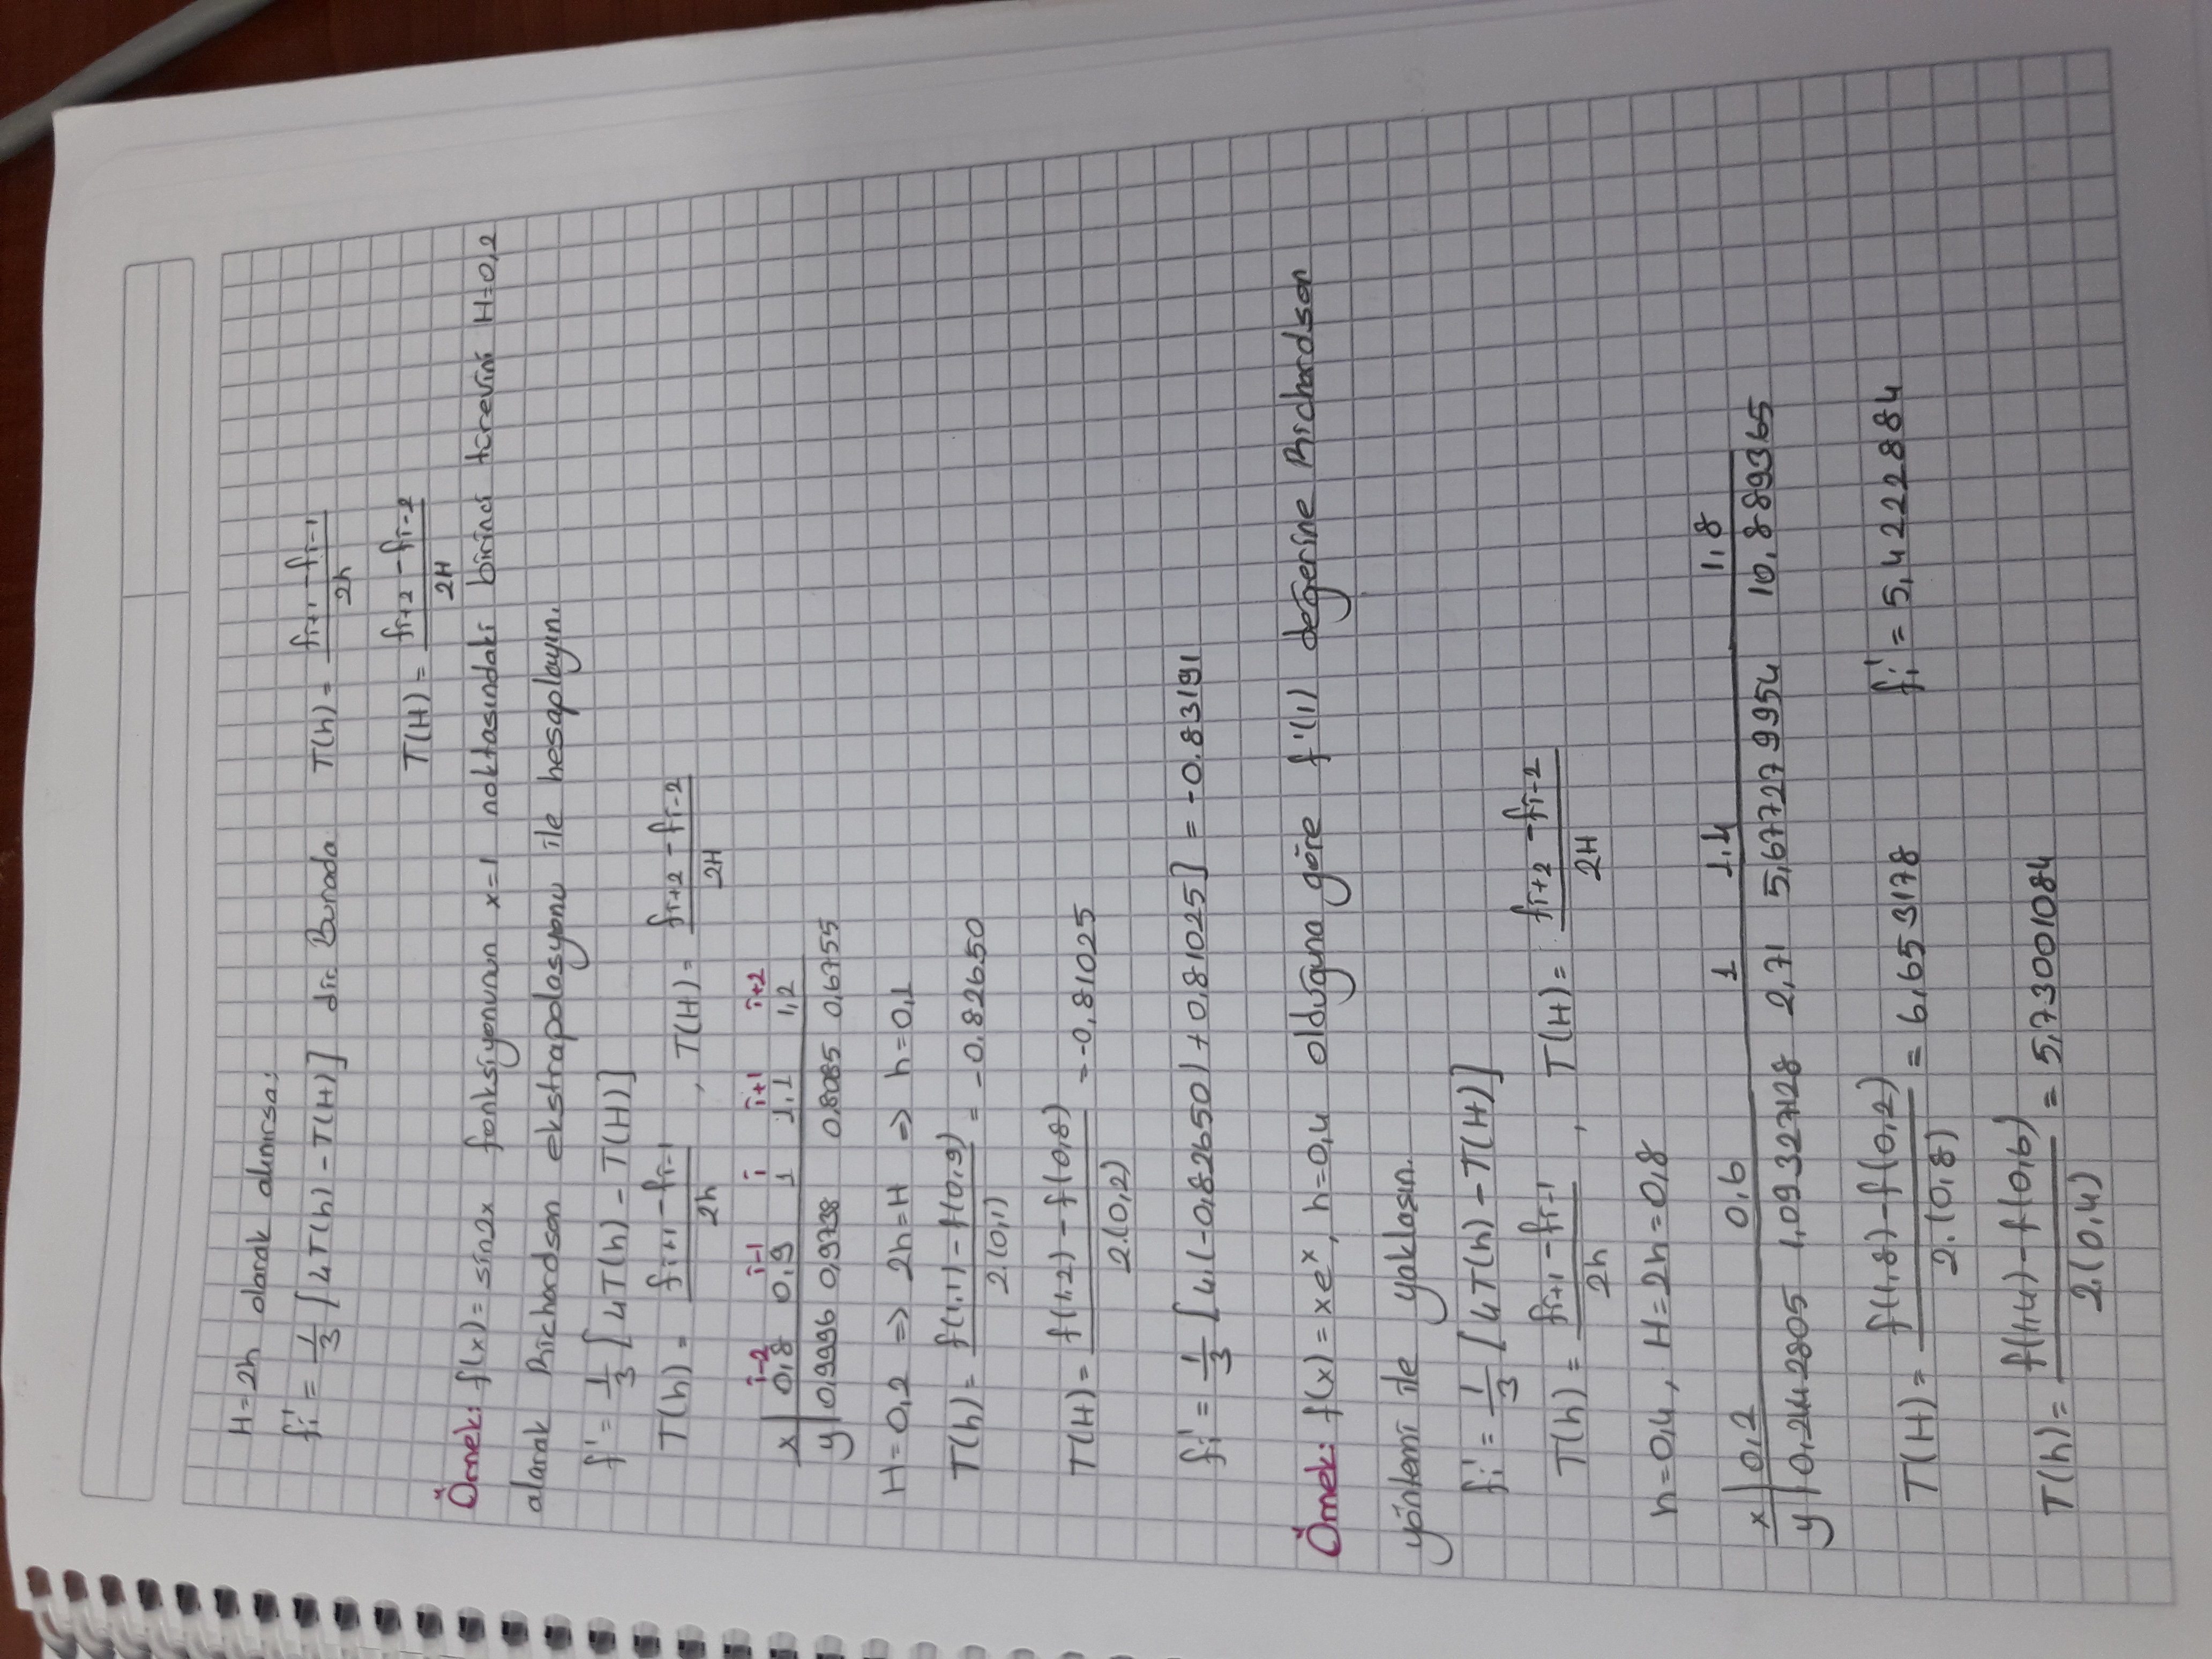 H=2h olarak alınırsa;
fi' = 1/3 [4T(h) - T(H)] dir. Burada T(h) = (fi+1 - fi-1)/2h
T(H) = (fi+2 - fi-2)/2H
Örnek: f(x) = sin2x fonksiyonunun x=1 noktasındaki birinci türevini H=0,2
alarak Richardson ekstrapolasyonu ile hesaplayın.
f' = 1/3 [4T(h) - T(H)]
T(h) = (fi+1 - fi-1)/2h , T(H) = (fi+2 - fi-2)/2H
i-2 i-1 i i+1 i+2
x 0,8 0,9 1 1,1 1,2
y 0,9996 0,9738 0,8085 0,6755
H=0,2 => 2h=H => h=0,1
T(h) = (f(1,1) - f(0,9))/2.(0,1) = -0,82650
T(H) = (f(1,2) - f(0,8))/2.(0,2) = -0,81025
fi' = 1/3 [4.(-0,82650) + 0,81025] = -0.83191
Örnek: f(x) = xe^x, h=0,4 olduğuna göre f'(1) değerine Richardson
yöntemi ile yaklaşın.
fi' = 1/3 [4T(h) - T(H)]
T(h) = (fi+1 - fi-1)/2h , T(H) = (fi+2 - fi-2)/2H
h=0,4, H=2h=0,8
x 0,2 0,6 1 1,4 1,8
y 0,2442805 1,09327128 2,71 5,677279954 10,889365
T(H) = (f(1,8) - f(0,2))/2.(0,8) = 6,653178 fi' = 5,4222884
T(h) = (f(1,4) - f(0,6))/2.(0,4) = 5,73001084